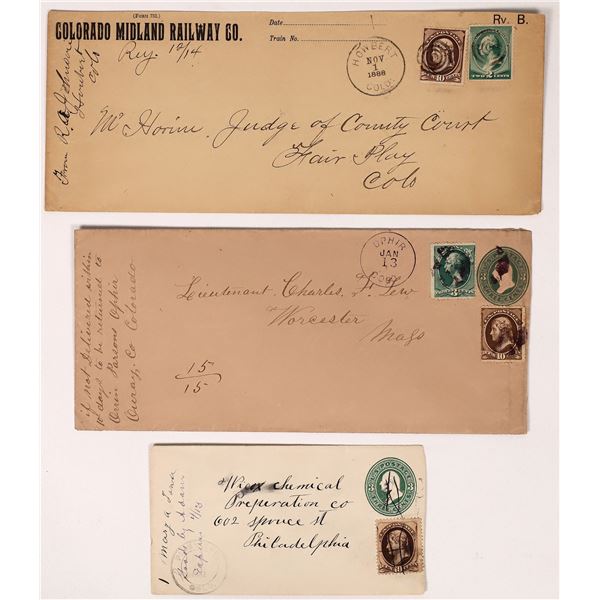 (Form 751.)
COLORADO MIDLAND RAILWAY CO.
Date
Train No.
Rv. B.
Reg. 12/14
From R.
Howbert
Colo
HOWBERT
NOV
1
1888
COLO.
10
2
TWO CENTS
Mc Horine, Judge of County Court
Fair Play
Colo
if not Delivered within
10 days to be returned to
Orrin Parsons Ophir
Ouray Co Colorado
OPHIR
JAN
13
COLO
3
10
Lieutenant Charles Lew
Worcester
Mass
15
15
Mary A
Wicox Chemical
Preparation co
602 spouce st
Philadelphia
U.S. POSTAGE
10